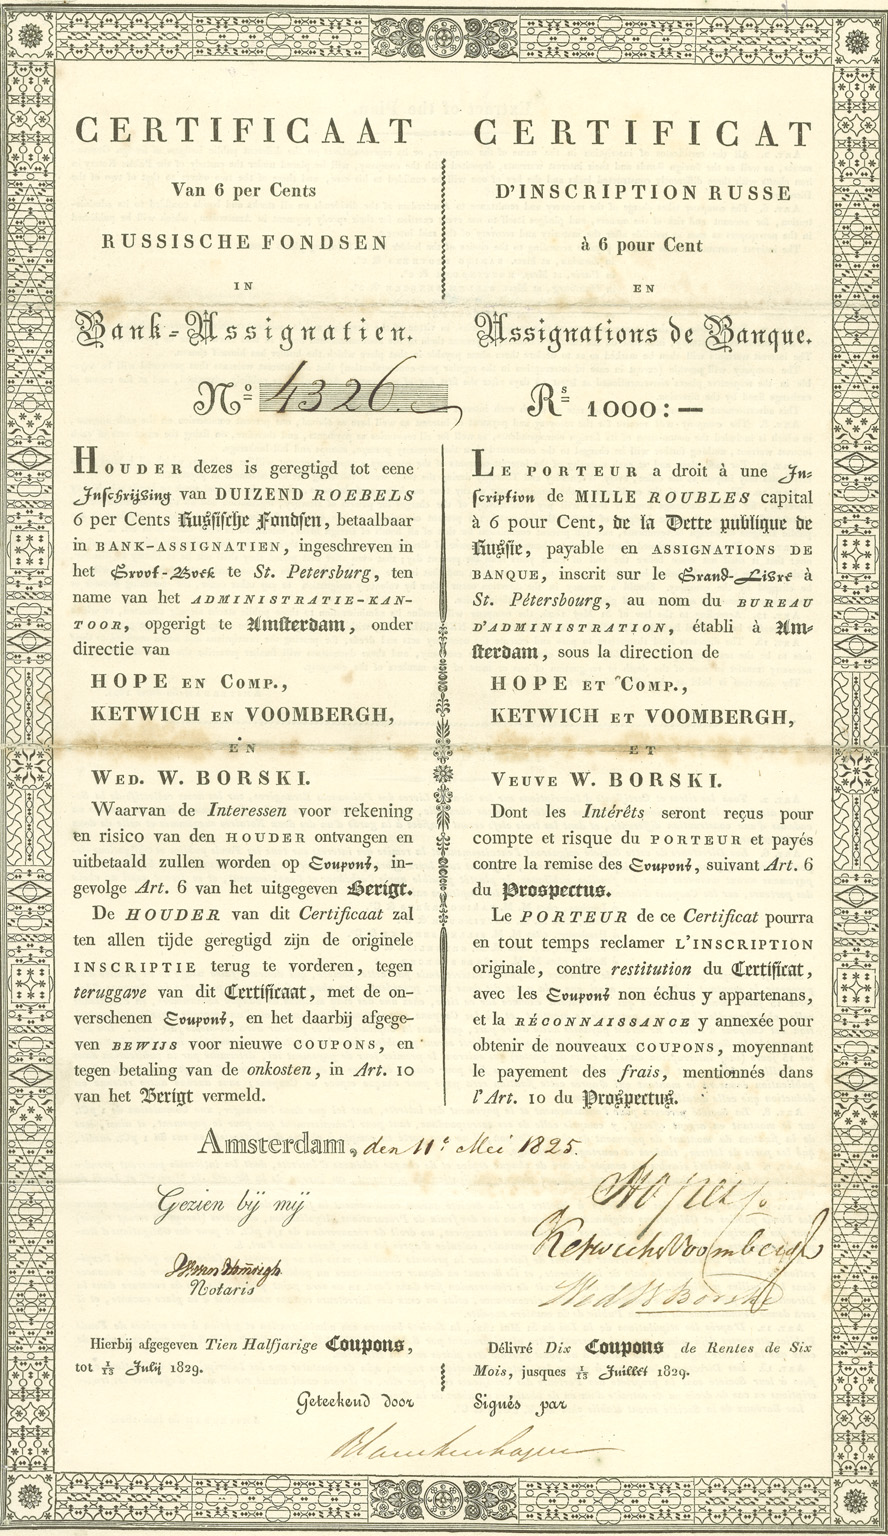 CERTIFICAAT
Van 6 per Cents
RUSSISCHE FONDSEN
IN
Bank-Assignatien.
No 4326.
HOUDER dezes is geregtigd tot eene
Inschrijving van DUIZEND ROEBELS
6 per Cents Russische Fondsen, betaalbaar
in BANK-ASSIGNATIEN, ingeschreven in
het Groot-Boek te St. Petersburg, ten
name van het ADMINISTRATIE-KAN-
TOOR, opgerigt te Amsterdam, onder
directie van
HOPE EN COMP.,
KETWICH EN VOOMBERGH,
EN
WED. W. BORSKI.
Waarvan de Interessen voor rekening
en risico van den HOUDER ontvangen en
uitbetaald zullen worden op Coupons, in-
gevolge Art. 6 van het uitgegeven Berigt.
De HOUDER van dit Certificaat zal
ten allen tijde geregtigd zijn de originele
INSCRIPTIE terug te vorderen, tegen
teruggave van dit Certificaat, met de on-
verschenen Coupons, en het daarbij afgege-
ven BEWIJS voor nieuwe COUPONS, en
tegen betaling van de onkosten, in Art. 10
van het Berigt vermeld.
CERTIFICAT
D'INSCRIPTION RUSSE
à 6 pour Cent
EN
Assignations de Banque.
Rs 1000:—
LE PORTEUR a droit à une In-
scription de MILLE ROUBLES capital
à 6 pour Cent, de la Dette publique de
Russie, payable en ASSIGNATIONS DE
BANQUE, inscrit sur le Grand-Livre à
St. Pétersbourg, au nom du BUREAU
D'ADMINISTRATION, établi à Am-
sterdam, sous la direction de
HOPE ET COMP.,
KETWICH ET VOOMBERGH,
ET
VEUVE W. BORSKI.
Dont les Intérêts seront reçus pour
compte et risque du PORTEUR et payés
contre la remise des Coupons, suivant Art. 6
du Prospectus.
Le PORTEUR de ce Certificat pourra
en tout temps reclamer L'INSCRIPTION
originale, contre restitution du Certificat,
avec les Coupons non échus y appartenans,
et la RÉCONNAISSANCE y annexée pour
obtenir de nouveaux COUPONS, moyennant
le payement des frais, mentionnés dans
l'Art. 10 du Prospectus.
Amsterdam, den 11e Mei 1825.
Gezien bij mij
Notaris
Hope &
Ketwich & Voombergh
Wed W Borski
Hierbij afgegeven Tien Halfjarige Coupons,
tot 1/13 Julij 1829.
Délivré Dix Coupons de Rentes de Six
Mois, jusques 1/13 Juillet 1829.
Geteekend door
Signés par